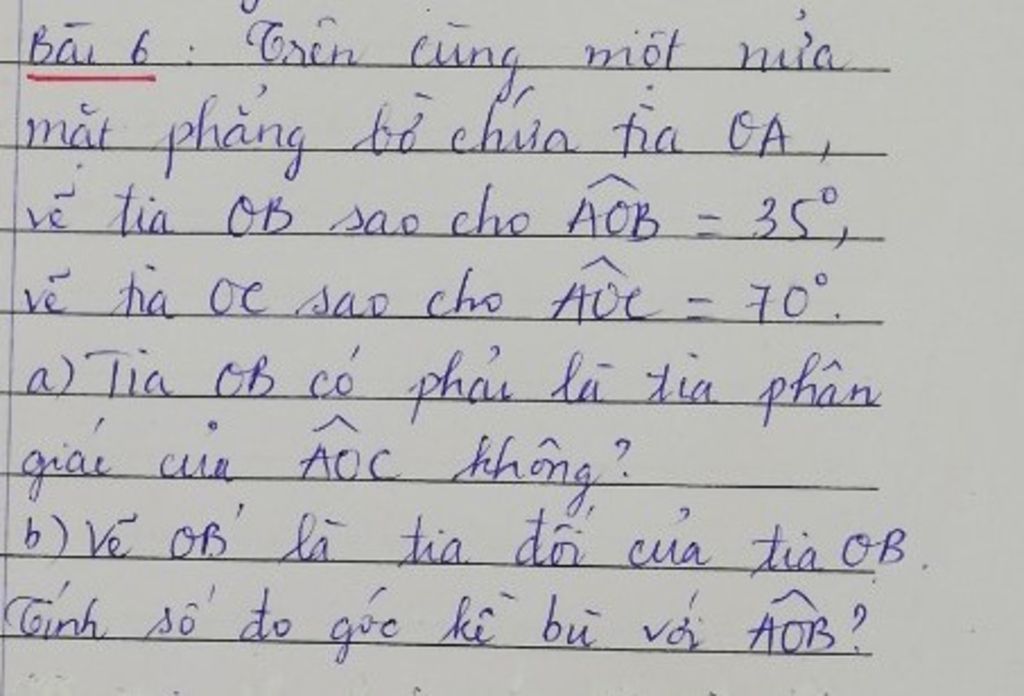 Bài 6 : Trên cùng một nửa
mặt phẳng bờ chứa tia OA,
vẽ tia OB sao cho AOB = 35°,
vẽ tia OC sao cho AOC = 70°.
a) Tia OB có phải là tia phân
giác của AOC không?
b) Vẽ OB' là tia đối của tia OB.
Tính số đo góc kề bù với AOB?